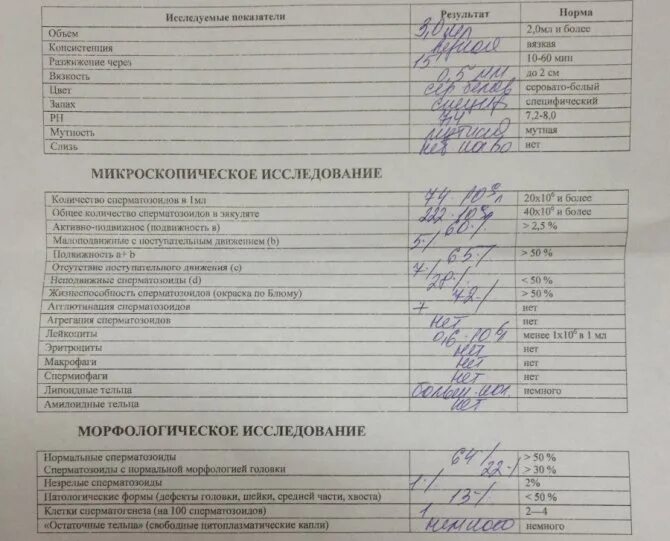 Исследуемые показатели Результат Норма
Объем 3,0 мл 2,0мл и более
Консистенция вязкая
Разжижение через 15 10-60 мин
Вязкость 0,5 мм до 2 см
Цвет сер белов серовато-белый
Запах специф специфический
РН 7,4 7,2-8,0
Мутность мутная мутная
Слизь нет нет
МИКРОСКОПИЧЕСКОЕ ИССЛЕДОВАНИЕ
Количество сперматозоидов в 1мл 74·10⁶ 20х10⁶ и более
Общее количество сперматозоидов в эякуляте 222·10⁶ 40х10⁶ и более
Активно-подвижное (подвижность в) 60% > 2,5 %
Малоподвижные с поступательным движением (b) 5%
Подвижность a+ b 65% > 50 %
Отсутствие поступательного движения (с) 7%
Неподвижные сперматозоиды (d) 28% < 50 %
Жизнеспособность сперматозоидов (окраска по Блюму) 72% > 50 %
Агглютанация сперматозоидов нет
Агрегация сперматозоидов нет нет
Лейкоциты 0,6·10⁶ менее 1х10⁶ в 1 мл
Эритроциты нет нет
Макрофаги нет нет
Спермиофаги нет нет
Липоидные тельца немного
Амилоидные тельца нет
МОРФОЛОГИЧЕСКОЕ ИССЛЕДОВАНИЕ
Нормальные сперматозоиды 64% > 50 %
Сперматозоиды с нормальной морфологией головки 22% > 30 %
Незрелые сперматозоиды 1% 2%
Патологические формы (дефекты головки, шейки, средней части, хвоста) 13% < 50 %
Клетки сперматогенеза (на 100 сперматозоидов) 1 2—4
«Остаточные тельца» (свободные цитоплазматические капли) немного немного